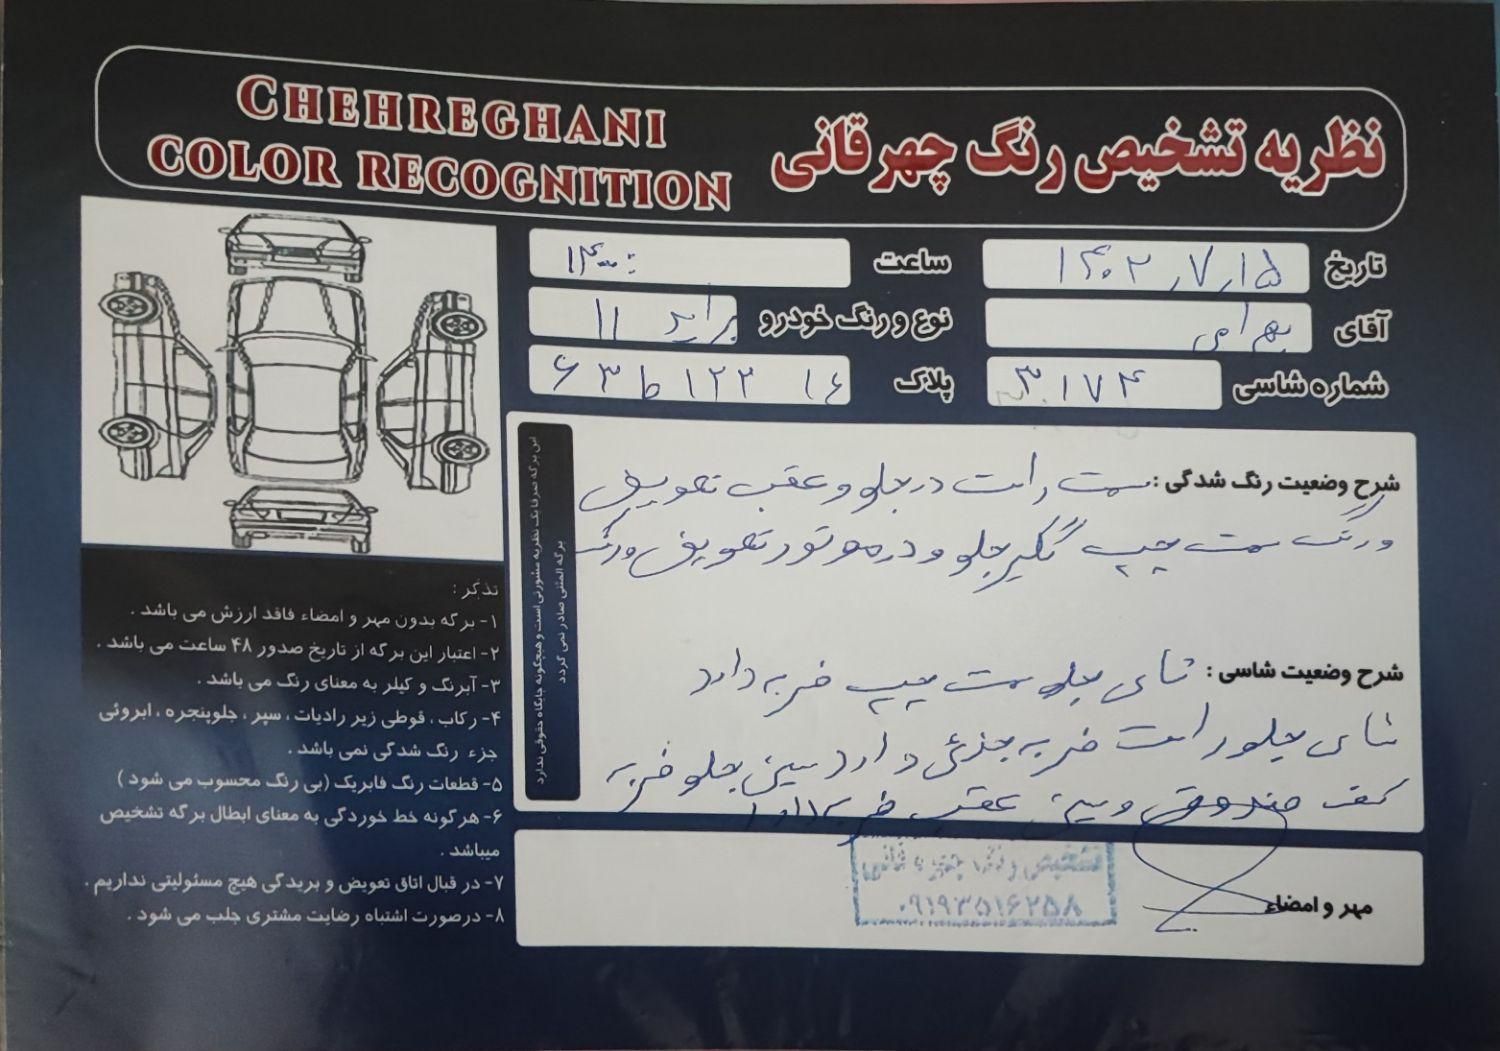 CHEHREGHANI
COLOR RECOGNITION
نظریه تشخیص رنگ چهرقانی
تاریخ ۱۴۰۲٫۷٫۱۵
ساعت ۱۴:۰۰
آقای بهرامی
نوع و رنگ خودرو پراید ۱۱۱
شماره شاسی ۳۱۷۴
پلاک ۶۳ ط ۱۲۲ ۱۶
شرح وضعیت رنگ شدگی : سمت راست درجلو و عقب تعویض
و رنگ سمت چپ گلگیر جلو و درموتور تعویض ورنگ
شرح وضعیت شاسی : شاسی جلو سمت چپ ضربه دارد
شاسی جلو راست ضربه جزئی دارد سینی جلو ضربه
کف صندوق و سینی عقب ضربه دارد
این برگه صرفا یک نظریه مشورتی است و هیچگونه جایگاه حقوقی ندارد
برگه المثنی صادر نمی گردد
مهر و امضاء
تشخیص رنگ چهره قانی
۰۹۱۹۳۵۱۶۲۵۸
تذکر :
۱- برگه بدون مهر و امضاء فاقد ارزش می باشد .
۲- اعتبار این برگه از تاریخ صدور ۴۸ ساعت می باشد .
۳- آبرنگ و کیلر به معنای رنگ می باشد .
۴- رکاب ، قوطی زیر رادیات ، سپر ، جلوپنجره ، ابروئی
جزء رنگ شدگی نمی باشد .
۵- قطعات رنگ فابریک (بی رنگ محسوب می شود )
۶- هرگونه خط خوردگی به معنای ابطال برگه تشخیص
میباشد .
۷- در قبال اتاق تعویض و بریدگی هیچ مسئولیتی نداریم .
۸- درصورت اشتباه رضایت مشتری جلب می شود .